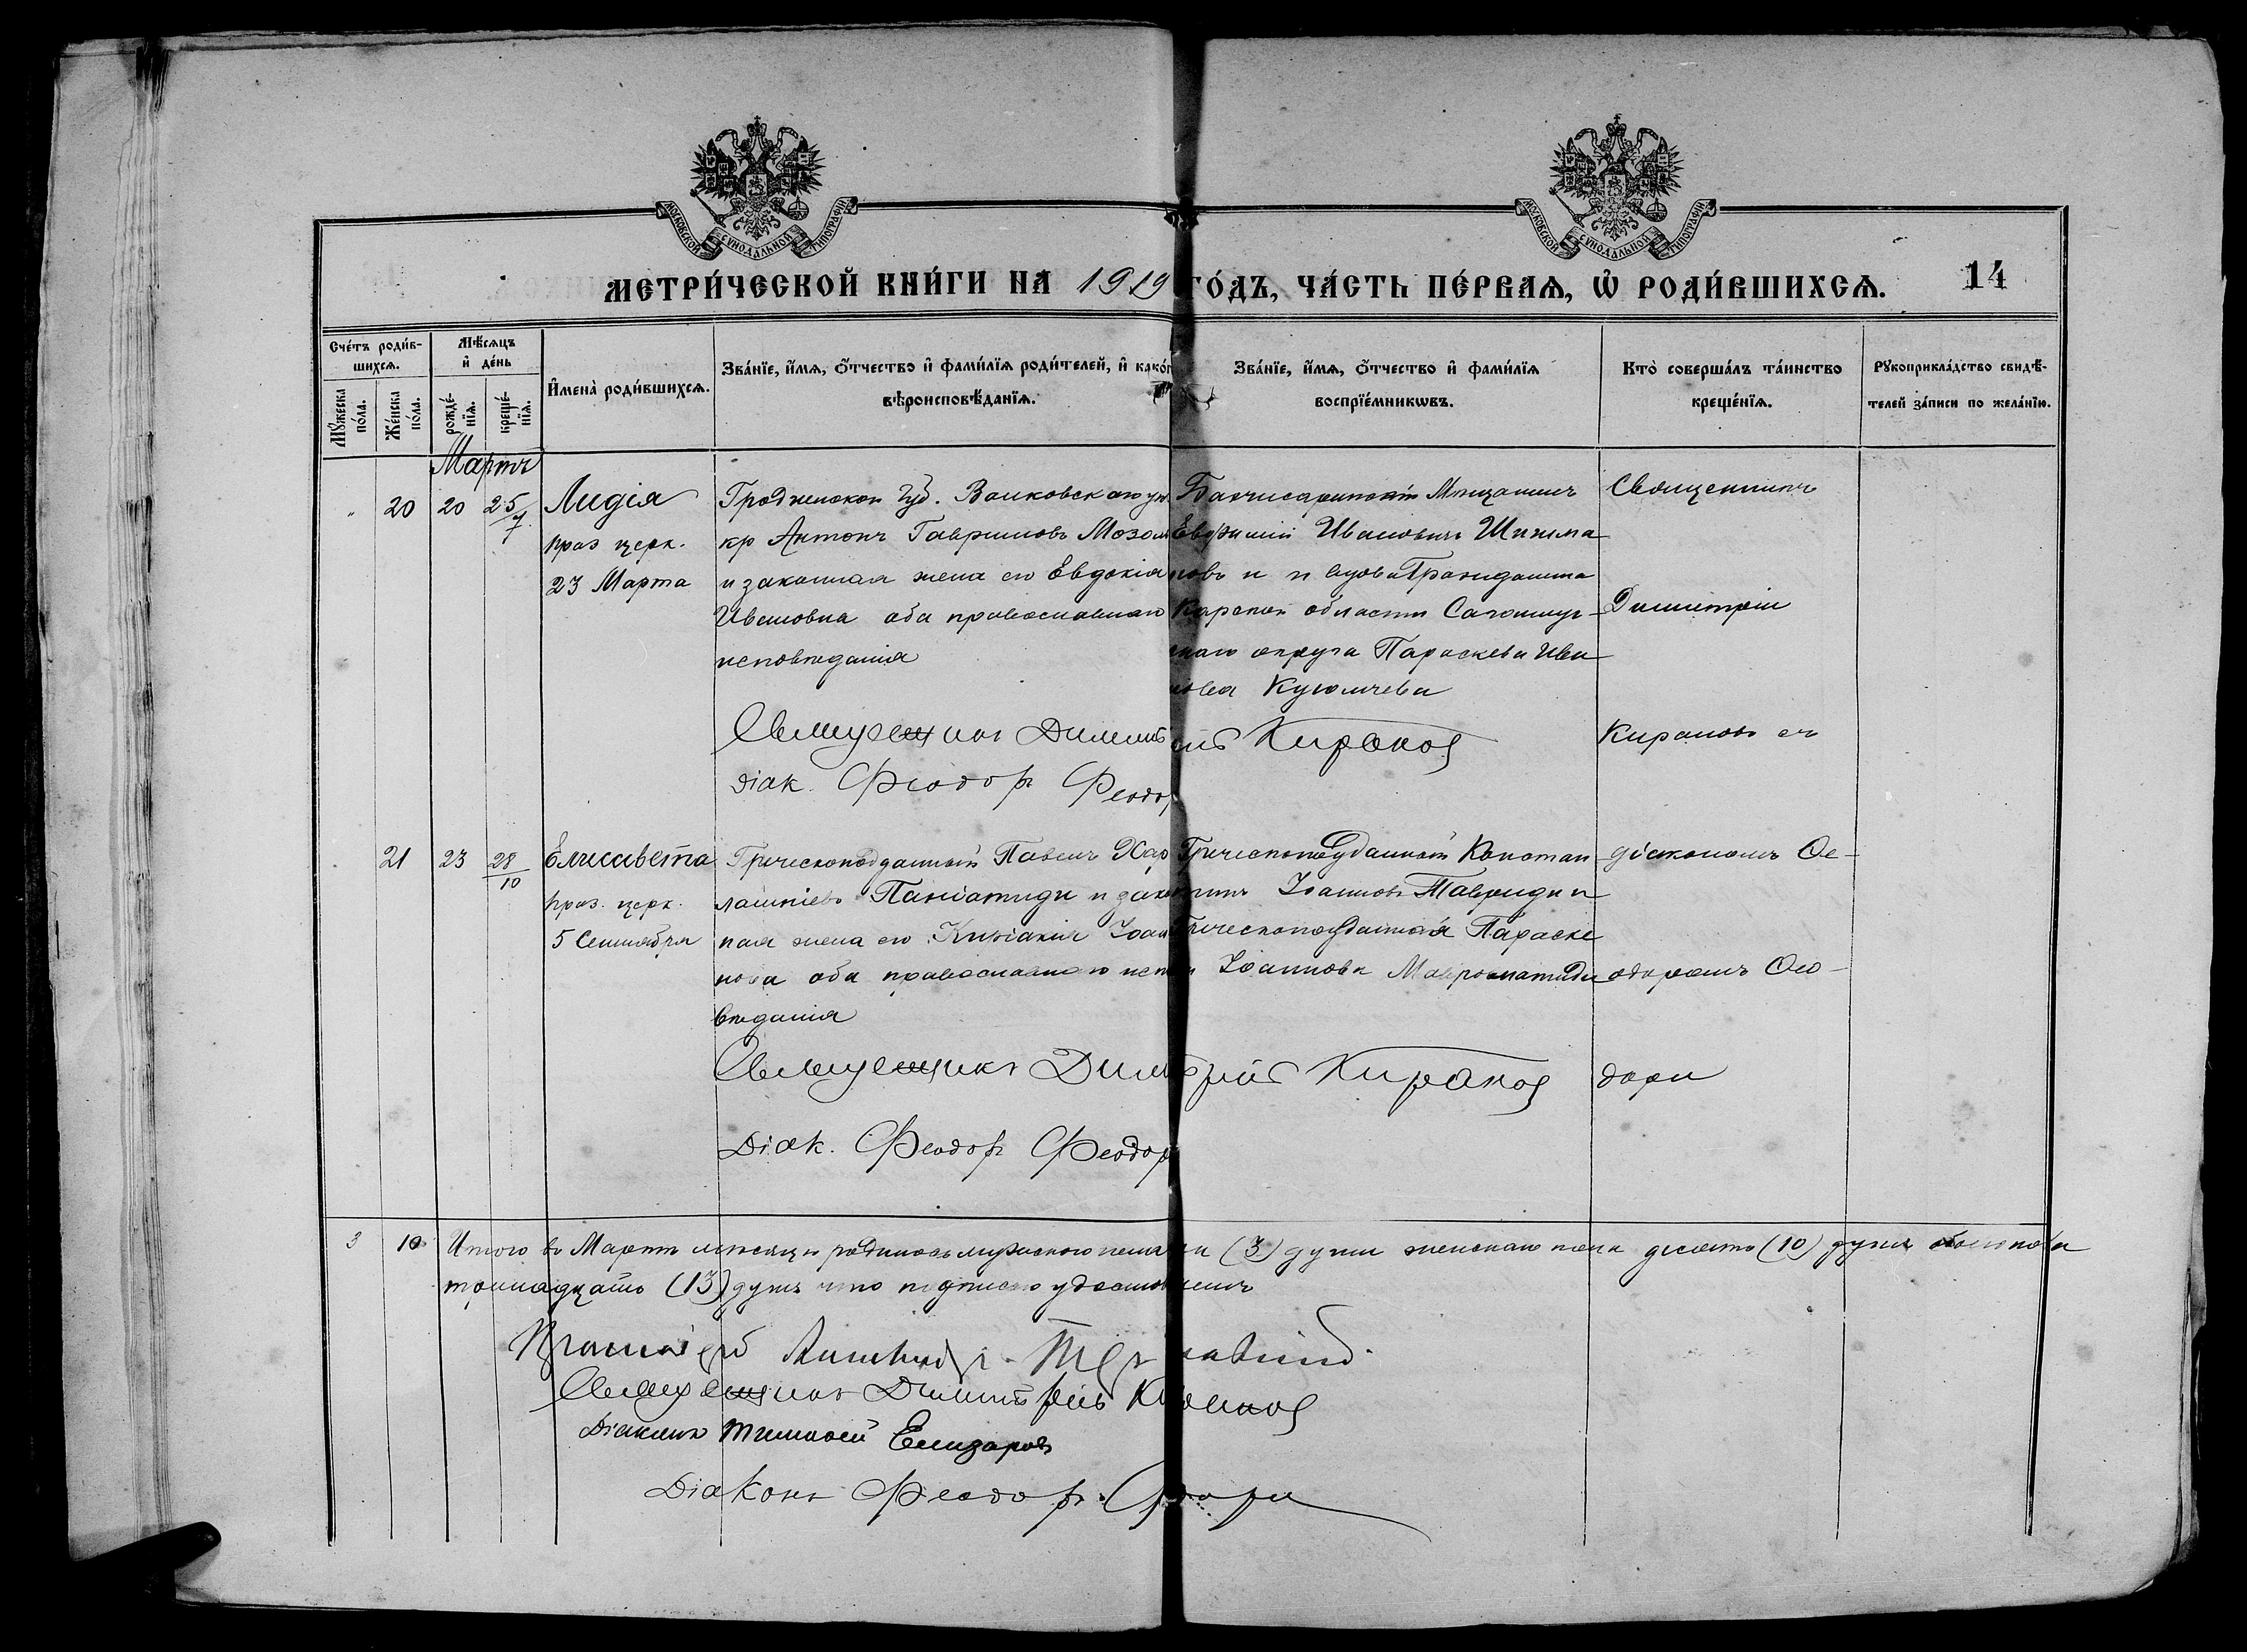 МОСКОВСКОЙ СѴНОДАЛЬНОЙ ТИПОГРАФІИ
МОСКОВСКОЙ СѴНОДАЛЬНОЙ ТИПОГРАФІИ
МЕТРИ́ЧЕСКОЙ КНИ́ГИ НА 1919 ГО́ДЪ, ЧА́СТЬ ПЕ́РВАѦ, Ѡ҆ РОДИ́ВШИХСѦ. 14
Сче́тъ роди́в-
шихсѧ.
Мꙋ́жеска по́ла.
Же́нска по́ла.
Мѣ́сѧцъ и҆ де́нь
рожде́-нїѧ.
креще́-нїѧ.
И҆мена̀ роди́вшихсѧ.
Зва́нїе, и҆́мѧ, ѻ҆́тчество и҆ фами́лїѧ роди́телей, и҆ како́г
вѣроисповѣ́данїѧ.
Зва́нїе, и҆́мѧ, ѻ҆́тчество и҆ фами́лїѧ
воспрїе́мникѡвъ.
Кто̀ соверша́лъ та́инство
креще́нїѧ.
Рꙋкоприкла́дство свидѣ́-
телей за́писи по жела́нїю.
Мартъ
" 20 20 25/7
Лидія
праз церк.
23 Марта
Гродненской Губ. Волковскаго у
кр Антонъ Гавриловъ
и законная жена его Евдокія
Ивановна оба православнаго
исповѣданія
Бахчисарайскій Мѣщанинъ
Евфимій Ивановичъ Шишма
новъ и Гражданка
Карской области
скаго округа Параскева Ива
нова Куюмчева
Священникъ
Димитрій
Кирановъ съ
Священникъ Димитрій Киранов
діак. Феодоръ Феодо
21 23 28/10
Елисавета
праз. церк.
5 Сентября
Греческоподданный Павелъ Хар
лампіевъ и закон
ная жена его Киріакія Іоан
нова оба православнаго испо
вѣданія
Греческоподданный Констан
тинъ Іоанновъ Тавриди и
Греческоподданная Параске
ва Іоаннова
діакономъ Ѳе-
одоромъ Ѳео-
дори
Священникъ Димитрій Киранов
Діак. Феодоръ Феодор
3 10 Итого въ Мартѣ мѣсяцѣ родилось мужескаго пола три (3) души женскаго пола десять (10) душъ обоего пола
тринадцать (13) душъ что подписью удостовѣряемъ
Протоіерей
Священникъ Димитрій Киранов
Діаконъ Тимоѳей Елизаровъ
Діаконъ Феодоръ